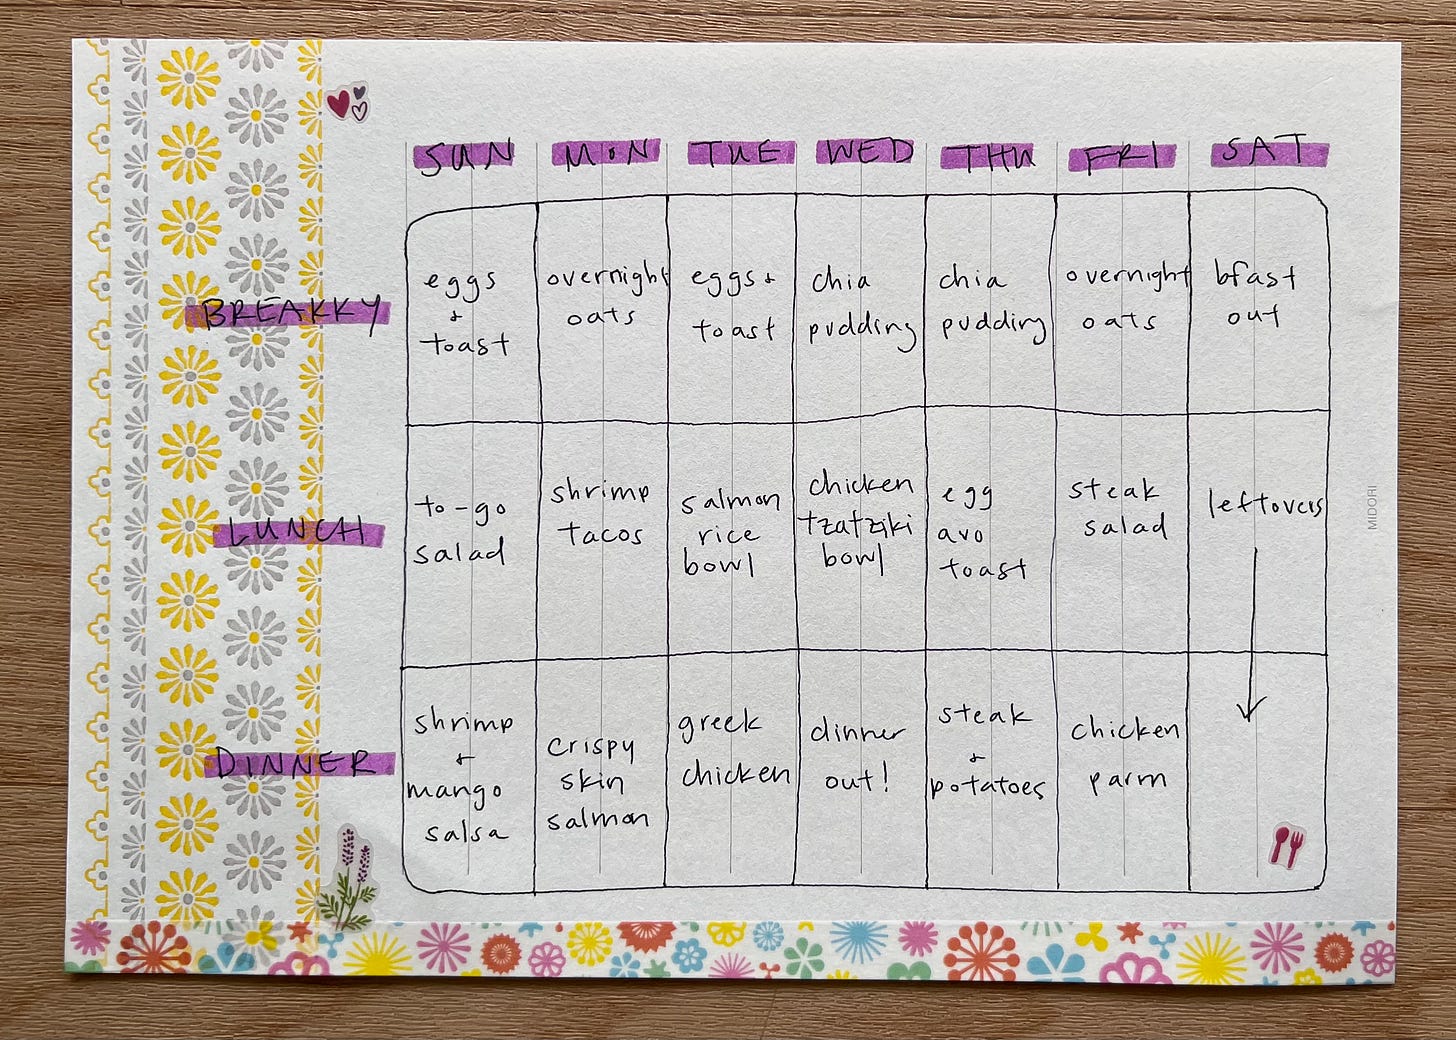 SUN MON TUE WED THU FRI SAT
BREAKKY
eggs
+
toast
overnight
oats
eggs +
toast
chia
pudding
chia
pudding
overnight
oats
bfast
out
LUNCH
to-go
salad
shrimp
tacos
salmon
rice
bowl
chicken
tzatziki
bowl
egg
avo
toast
steak
salad
leftovers
DINNER
shrimp
+
mango
salsa
crispy
skin
salmon
greek
chicken
dinner
out!
steak
+
potatoes
chicken
parm
MIDORI